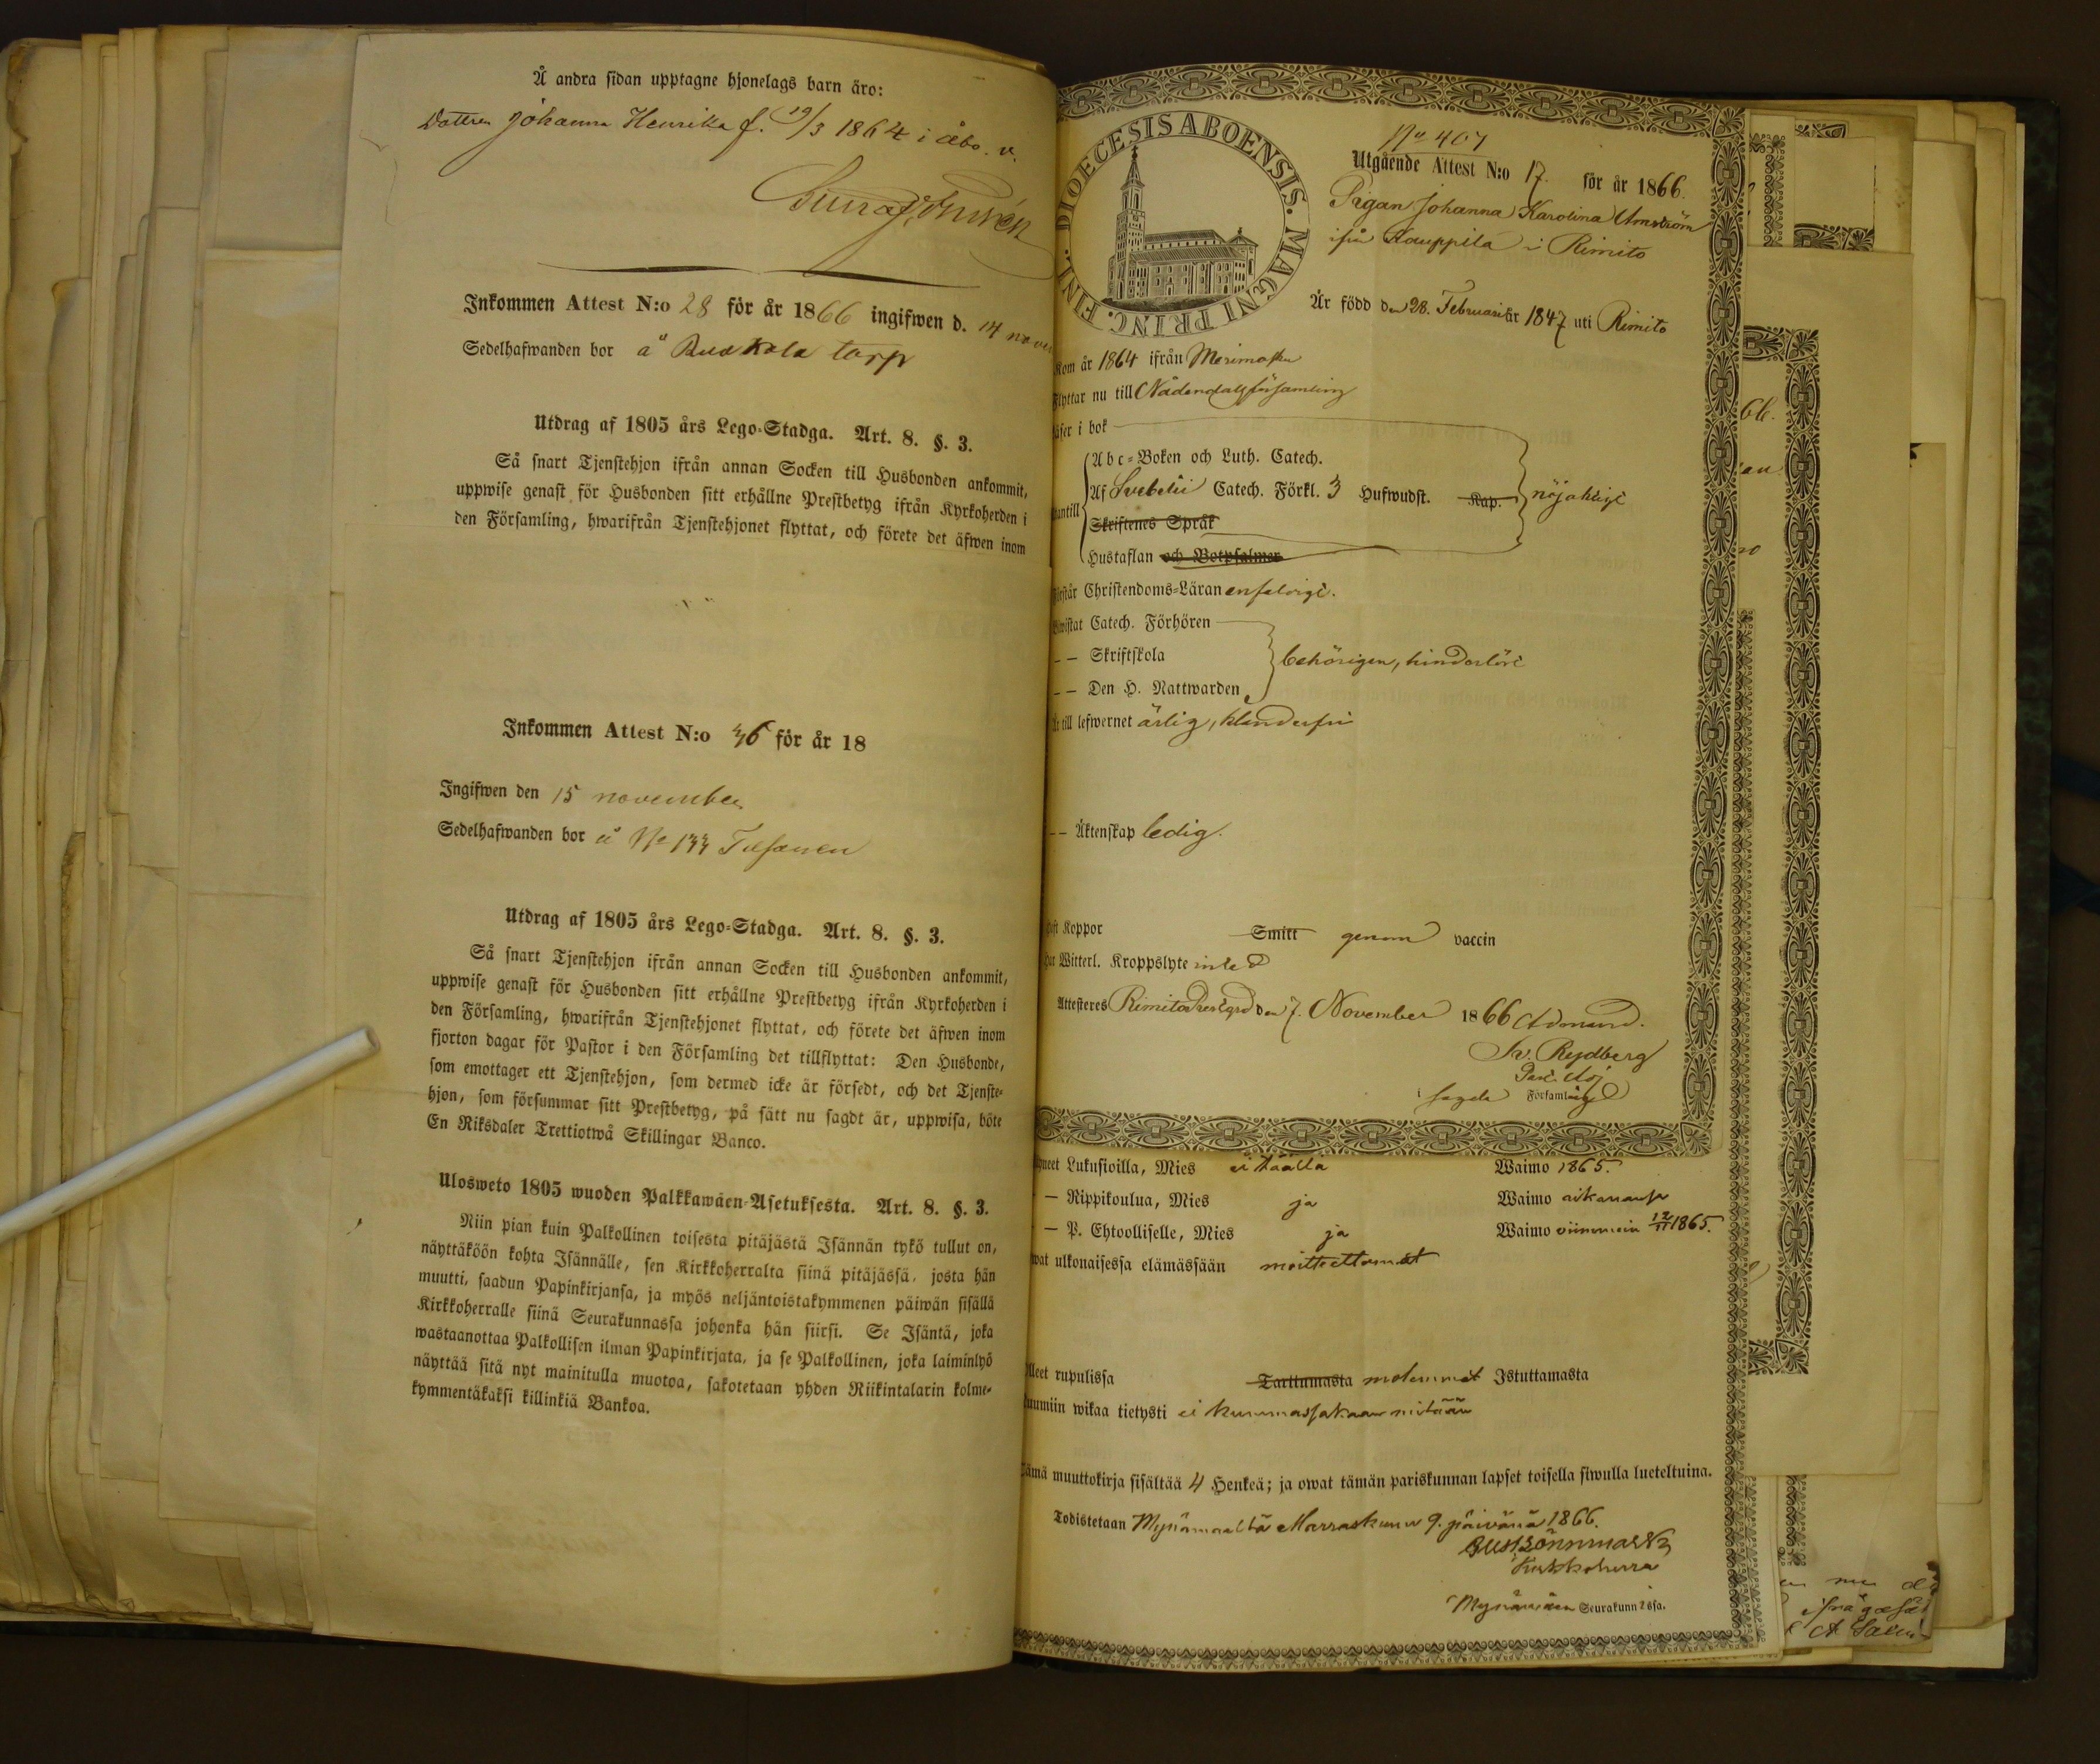 Å andra sidan upptagne hjonelags barn äro:
Dottren Johanna Henrika f. 19/3 1864 i Åbo. v.
Inkommen Attest N:o 28 för år 1866 ingifwen d. 14 nove
Sedelhafwanden bor å torp
Utdrag af 1805 års Lego-Stadga. Art. 8. §. 3.
Så snart Tjenstehjon ifrån annan Socken till Husbonden ankommit,
uppwise genast för Husbonden sitt erhållne Prestbetyg ifrån Kyrkoherden i
den Församling, hwarifrån Tjenstehjonet flyttat, och förete det äfwen inom
Inkommen Attest N:o 46 för år 18
Ingifwen den 15 november
Sedelhafwanden bor å No 133
Utdrag af 1805 års Lego-Stadga. Art. 8. §. 3.
Så snart Tjenstehjon ifrån annan Socken till Husbonden ankommit,
uppwise genast för Husbonden sitt erhållne Prestbetyg ifrån Kyrkoherden i
den Församling, hwarifrån Tjenstehjonet flyttat, och förete det äfwen inom
fjorton dagar för Pastor i den Församling det tillflyttat: Den Husbonde,
som emottager ett Tjenstehjon, som dermed icke är försedt, och det Tjenste-
hjon, som försummar sitt Prestbetyg, på sätt nu sagdt är, uppwisa, böte
En Riksdaler Trettiotwå Skillingar Banco.
Ulosweto 1805 wuoden Palkkawäen-Asetuksesta. Art. 8. §. 3.
Niin pian kuin Palkollinen toisesta pitäjästä Isännän tykö tullut on,
näyttäköön kohta Isännälle, sen Kirkkoherralta siinä pitäjässä, josta hän
muutti, saadun Papinkirjansa, ja myös neljäntoistakymmenen päiwän sisällä
Kirkkoherralle siinä Seurakunnassa johonka hän siirsi. Se Isäntä, joka
wastaanottaa Palkollisen ilman Papinkirjata, ja se Palkollinen, joka laiminlyö
näyttää sitä nyt mainitulla muotoa, sakotetaan yhden Riikintalarin kolme-
kymmentäkaksi killinkiä Bankoa.
DIOECESIS ABOENSIS. MAGNI PRINC. FINL.
No 407
Utgående Attest N:o 17. för år 1866.
Pigan Johanna Karolina Arnström
ifrån Kauppila i Rimito
Är född den 28. Februari år 1847 uti Rimito
Kom år 1864 ifrån Merimasku
Flyttar nu till Nådendals församling
Läser i bok
Abc-Boken och Luth. Catech.
Af Svebelii Catech. Förkl. 3 Hufwudst. Kap. nöjaktigt
Skriftenes Språk
Hustaflan och Botpsalmer
Förstår Christendoms-Läran enfaldigt.
Bewistat Catech. Förhören
— — Skriftskola behörigen, hinderlöst
— — Den H. Nattwarden
Är till lefwernet ärlig, klanderfri
— — Äktenskap ledig.
Haft Koppor Smitt genom vaccin
Har Witterl. Kroppslyte intet
Attesteres Rimito Prestgrd den 7. November 1866 Ad mand.
Sv. Rydberg
Past. Adj
i sagda Församling
Lukusioilla, Mies ei täällä Waimo 1865.
— Rippikoulua, Mies ja Waimo aikanansa
— P. Ehtoolliselle, Mies ja Waimo viimmein 12/11 1865.
wat ulkonaisessa elämässään moitteettomat
lleet rupulissa Tarttumasta molemmat Istuttamasta
uumiin wikaa tietysti ei kummassakaan mitään
Tämä muuttokirja sisältää 4 Henkeä; ja owat tämän pariskunnan lapset toisella siwulla lueteltuina.
Todistetaan Mynämaeltä Marraskuun 9. päivänä 1866.
Gust. Lönnmark
Kirkkoherra
Mynämäen Seurakunnassa.